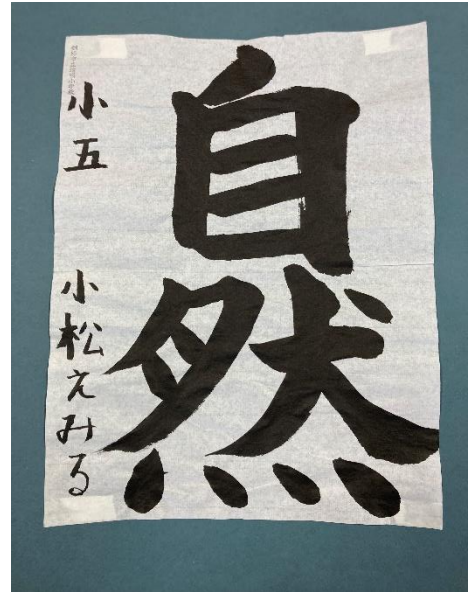 自然
小五
小松えみる